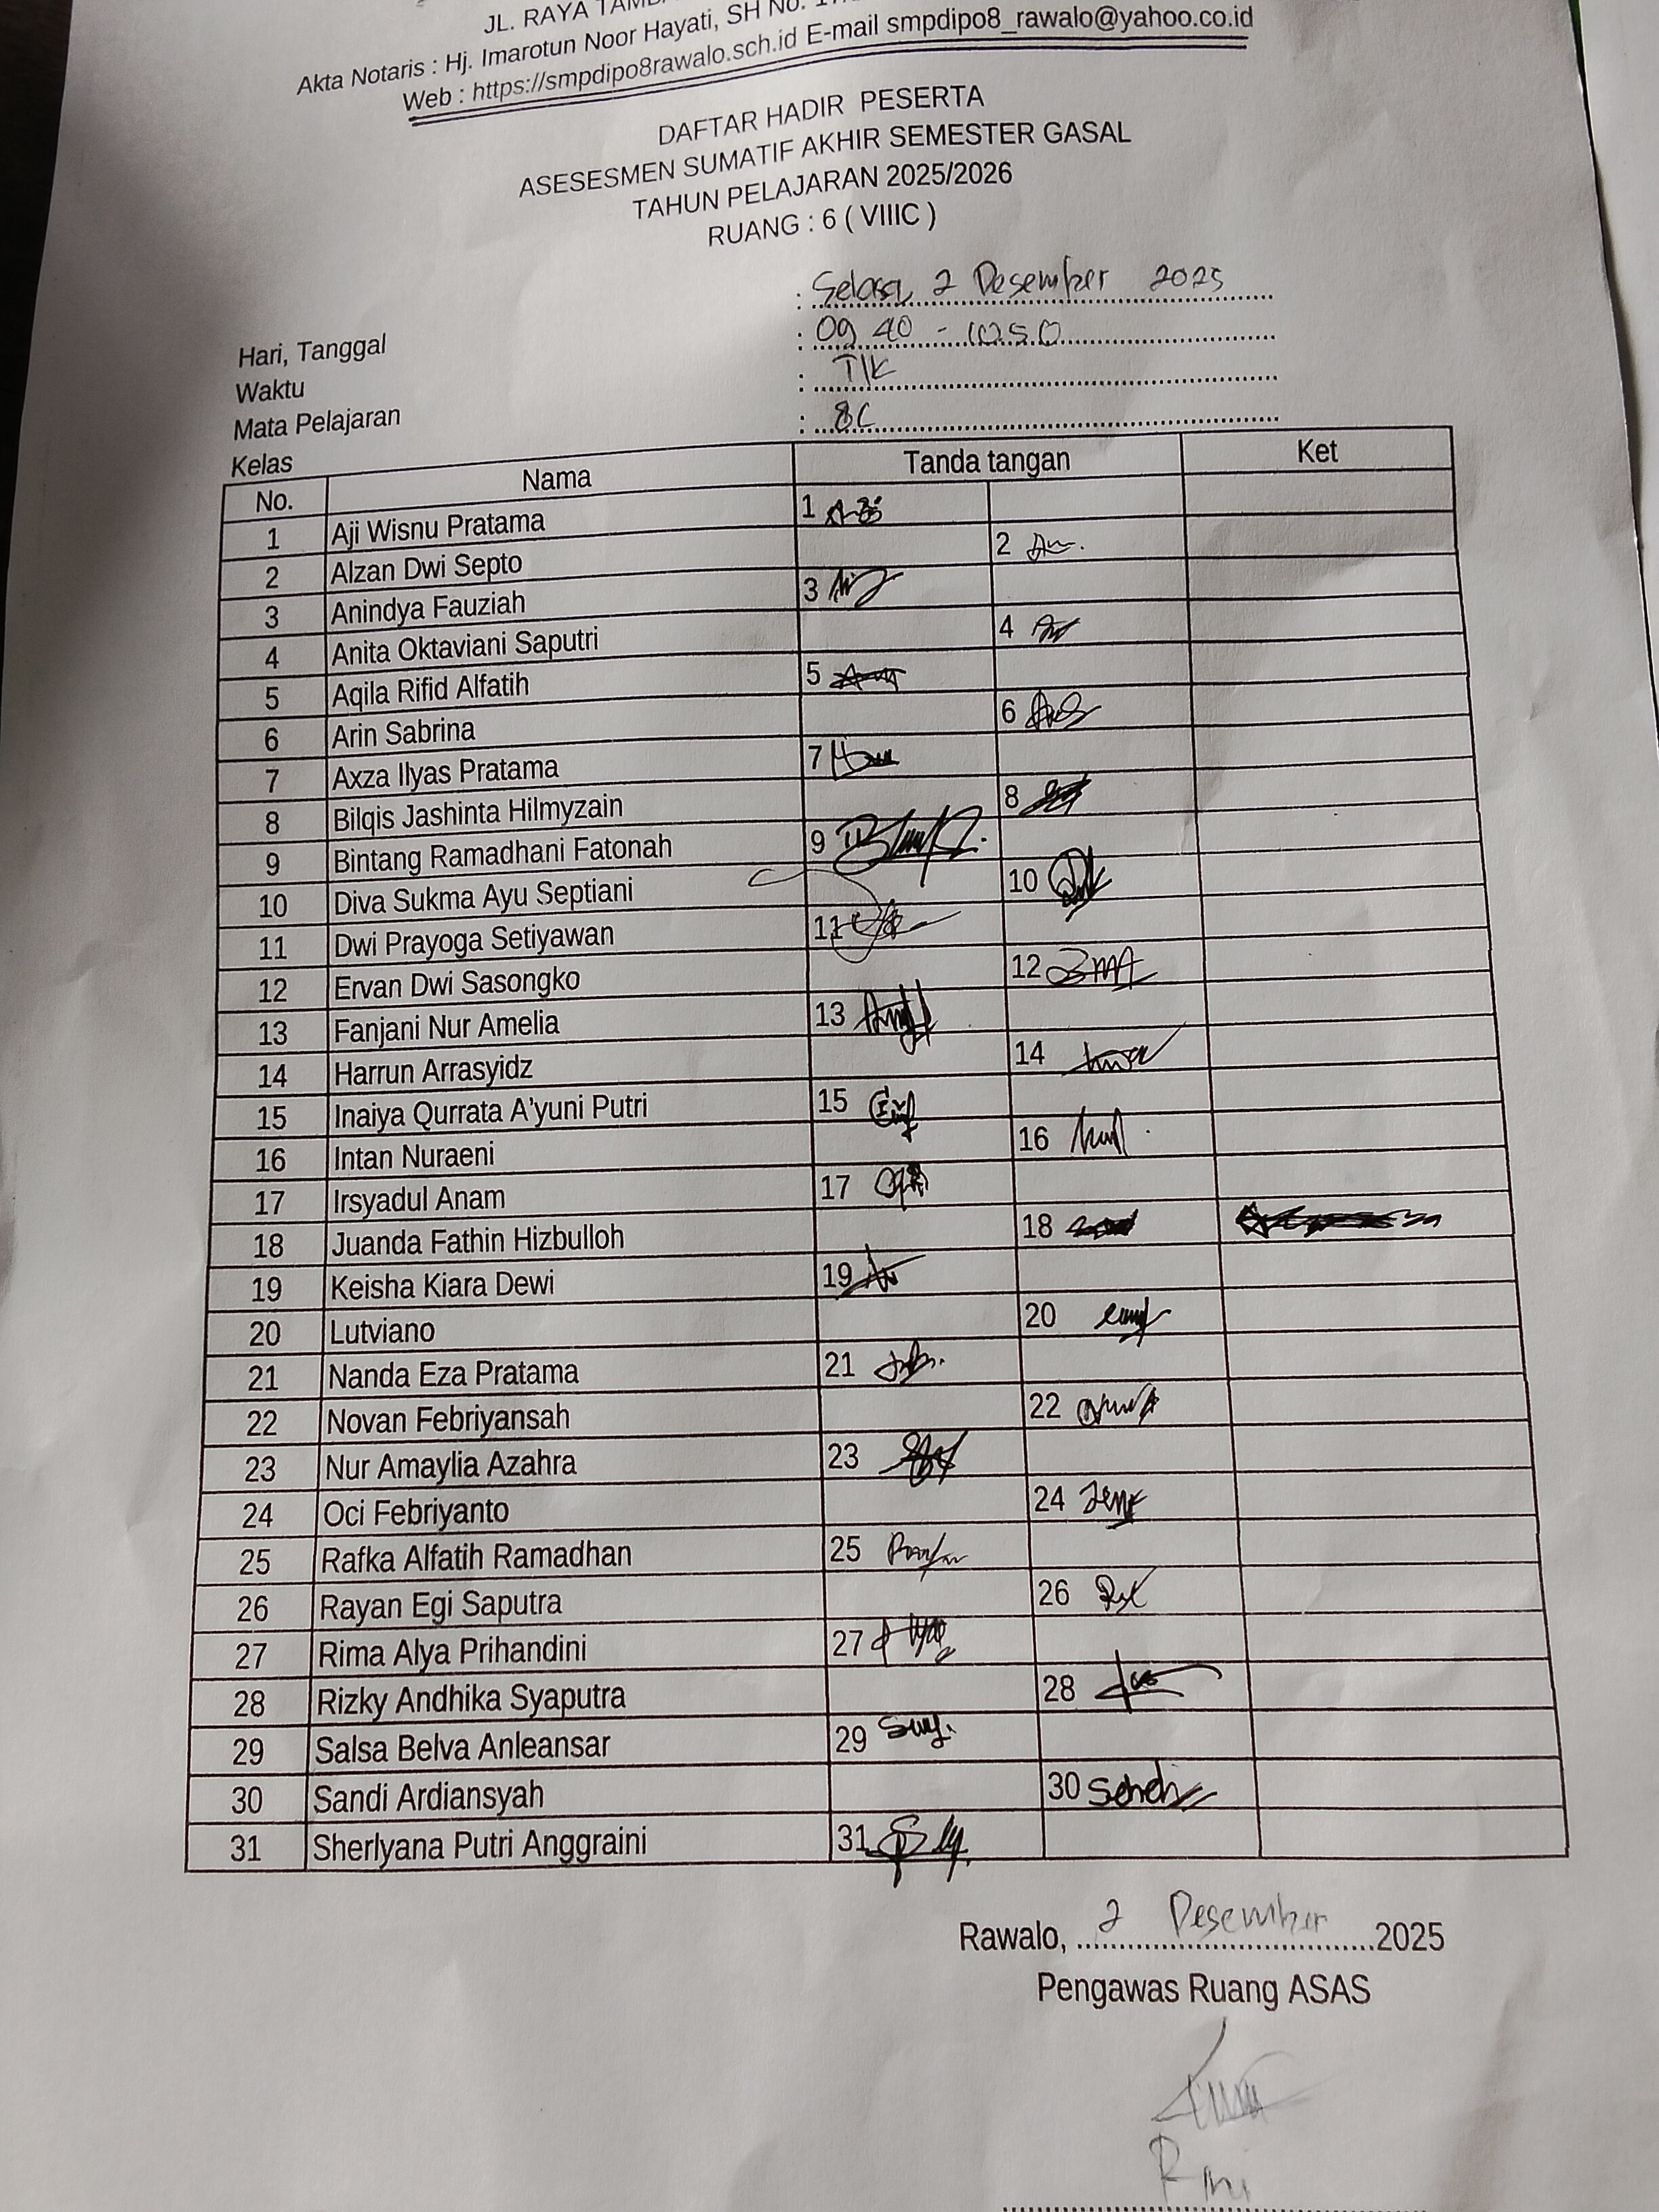 JL. RAYA
Akta Notaris : Hj. Imarotun Noor Hayati, SH No.
Web : https://smpdipo8rawalo.sch.id E-mail smpdipo8_rawalo@yahoo.co.id
DAFTAR HADIR PESERTA
ASESESMEN SUMATIF AKHIR SEMESTER GASAL
TAHUN PELAJARAN 2025/2026
RUANG : 6 ( VIIIC )
Hari, Tanggal : Selasa, 2 Desember 2025
Waktu : 09 40 - 10.50
Mata Pelajaran : TIK
Kelas : 8C
No. Nama Tanda tangan Ket
1 Aji Wisnu Pratama 1
2 Alzan Dwi Septo 2
3 Anindya Fauziah 3
4 Anita Oktaviani Saputri 4
5 Aqila Rifid Alfatih 5
6 Arin Sabrina 6
7 Axza Ilyas Pratama 7
8 Bilqis Jashinta Hilmyzain 8
9 Bintang Ramadhani Fatonah 9
10 Diva Sukma Ayu Septiani 10
11 Dwi Prayoga Setiyawan 11
12 Ervan Dwi Sasongko 12
13 Fanjani Nur Amelia 13
14 Harrun Arrasyidz 14
15 Inaiya Qurrata A'yuni Putri 15
16 Intan Nuraeni 16
17 Irsyadul Anam 17
18 Juanda Fathin Hizbulloh 18
19 Keisha Kiara Dewi 19
20 Lutviano 20
21 Nanda Eza Pratama 21
22 Novan Febriyansah 22
23 Nur Amaylia Azahra 23
24 Oci Febriyanto 24
25 Rafka Alfatih Ramadhan 25
26 Rayan Egi Saputra 26
27 Rima Alya Prihandini 27
28 Rizky Andhika Syaputra 28
29 Salsa Belva Anleansar 29
30 Sandi Ardiansyah 30
31 Sherlyana Putri Anggraini 31
Rawalo, 2 Desember 2025
Pengawas Ruang ASAS
Rini